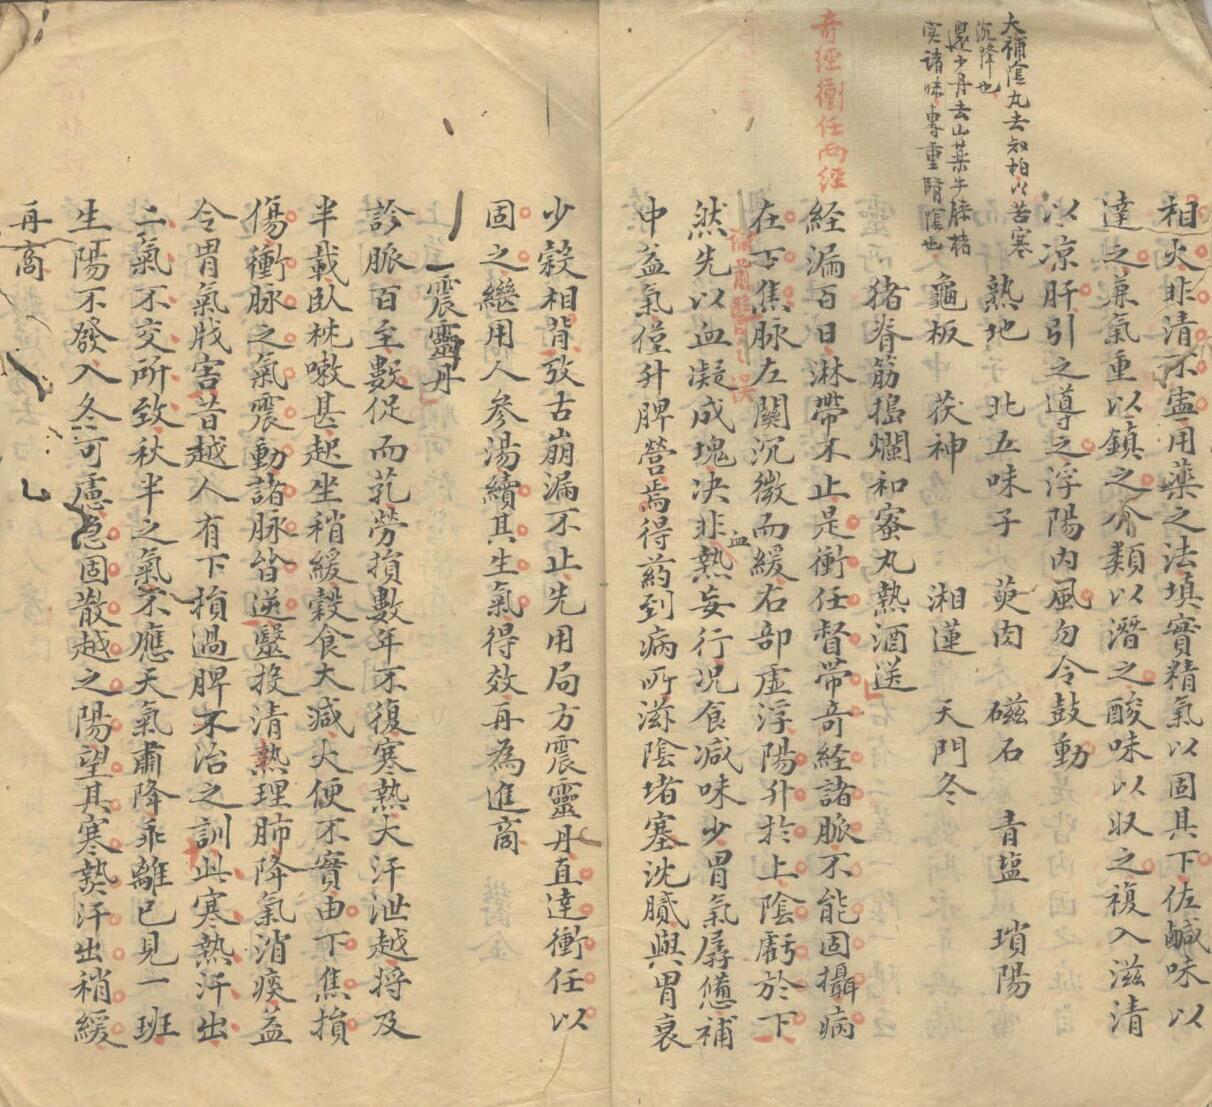 大補陰丸去知柏以苦寒
沉降也
還少丹去山藥牛膝楮
實諸味專重腎陰也
奇經衝任兩經
相火非清不寍用藥之法填實精氣以固其下佐鹹味以
達之兼氣重以鎮之介類以潛之酸味以収之複入滋清
以凉肝引之導之浮陽内風勿令鼓動
熟地 北五味子 萸肉 磁石 青盐 瑣陽
龜板 茯神 湘蓮 天門冬
猪脊筋搗爛和蜜丸熟酒送
經漏百日淋帶不止是衝任督帶奇經諸脈不能固攝病
在下焦脉左關沉微而緩右部虛浮陽升於上陰虧於下
然先以血凝成塊决非熱血妄行况食减味少胃氣孱憊補
中益氣僅升脾營焉得药到病所滋陰堵塞沈膩與胃衰
少穀相背攷古崩漏不止先用局方震靈丹直達衝任以
固之繼用人参湯續其生氣得效再為進商
震靈丹
診脈百至數促而芤勞損數年不復寒熱大汗泄越将及
半載臥枕嗽甚起坐稍緩穀食大减大便不實由下焦損
傷衝脉之氣震動諸脉皆逆醫投清熱理肺降氣消痰益
令胃氣戕害昔越人有下損過脾不治之訓此寒熱汗出
二氣不交所致秋半之氣不應天氣肅降乖離已見一班
生陽不發入冬可慮急固散越之陽望其寒熱汗出稍緩
再商